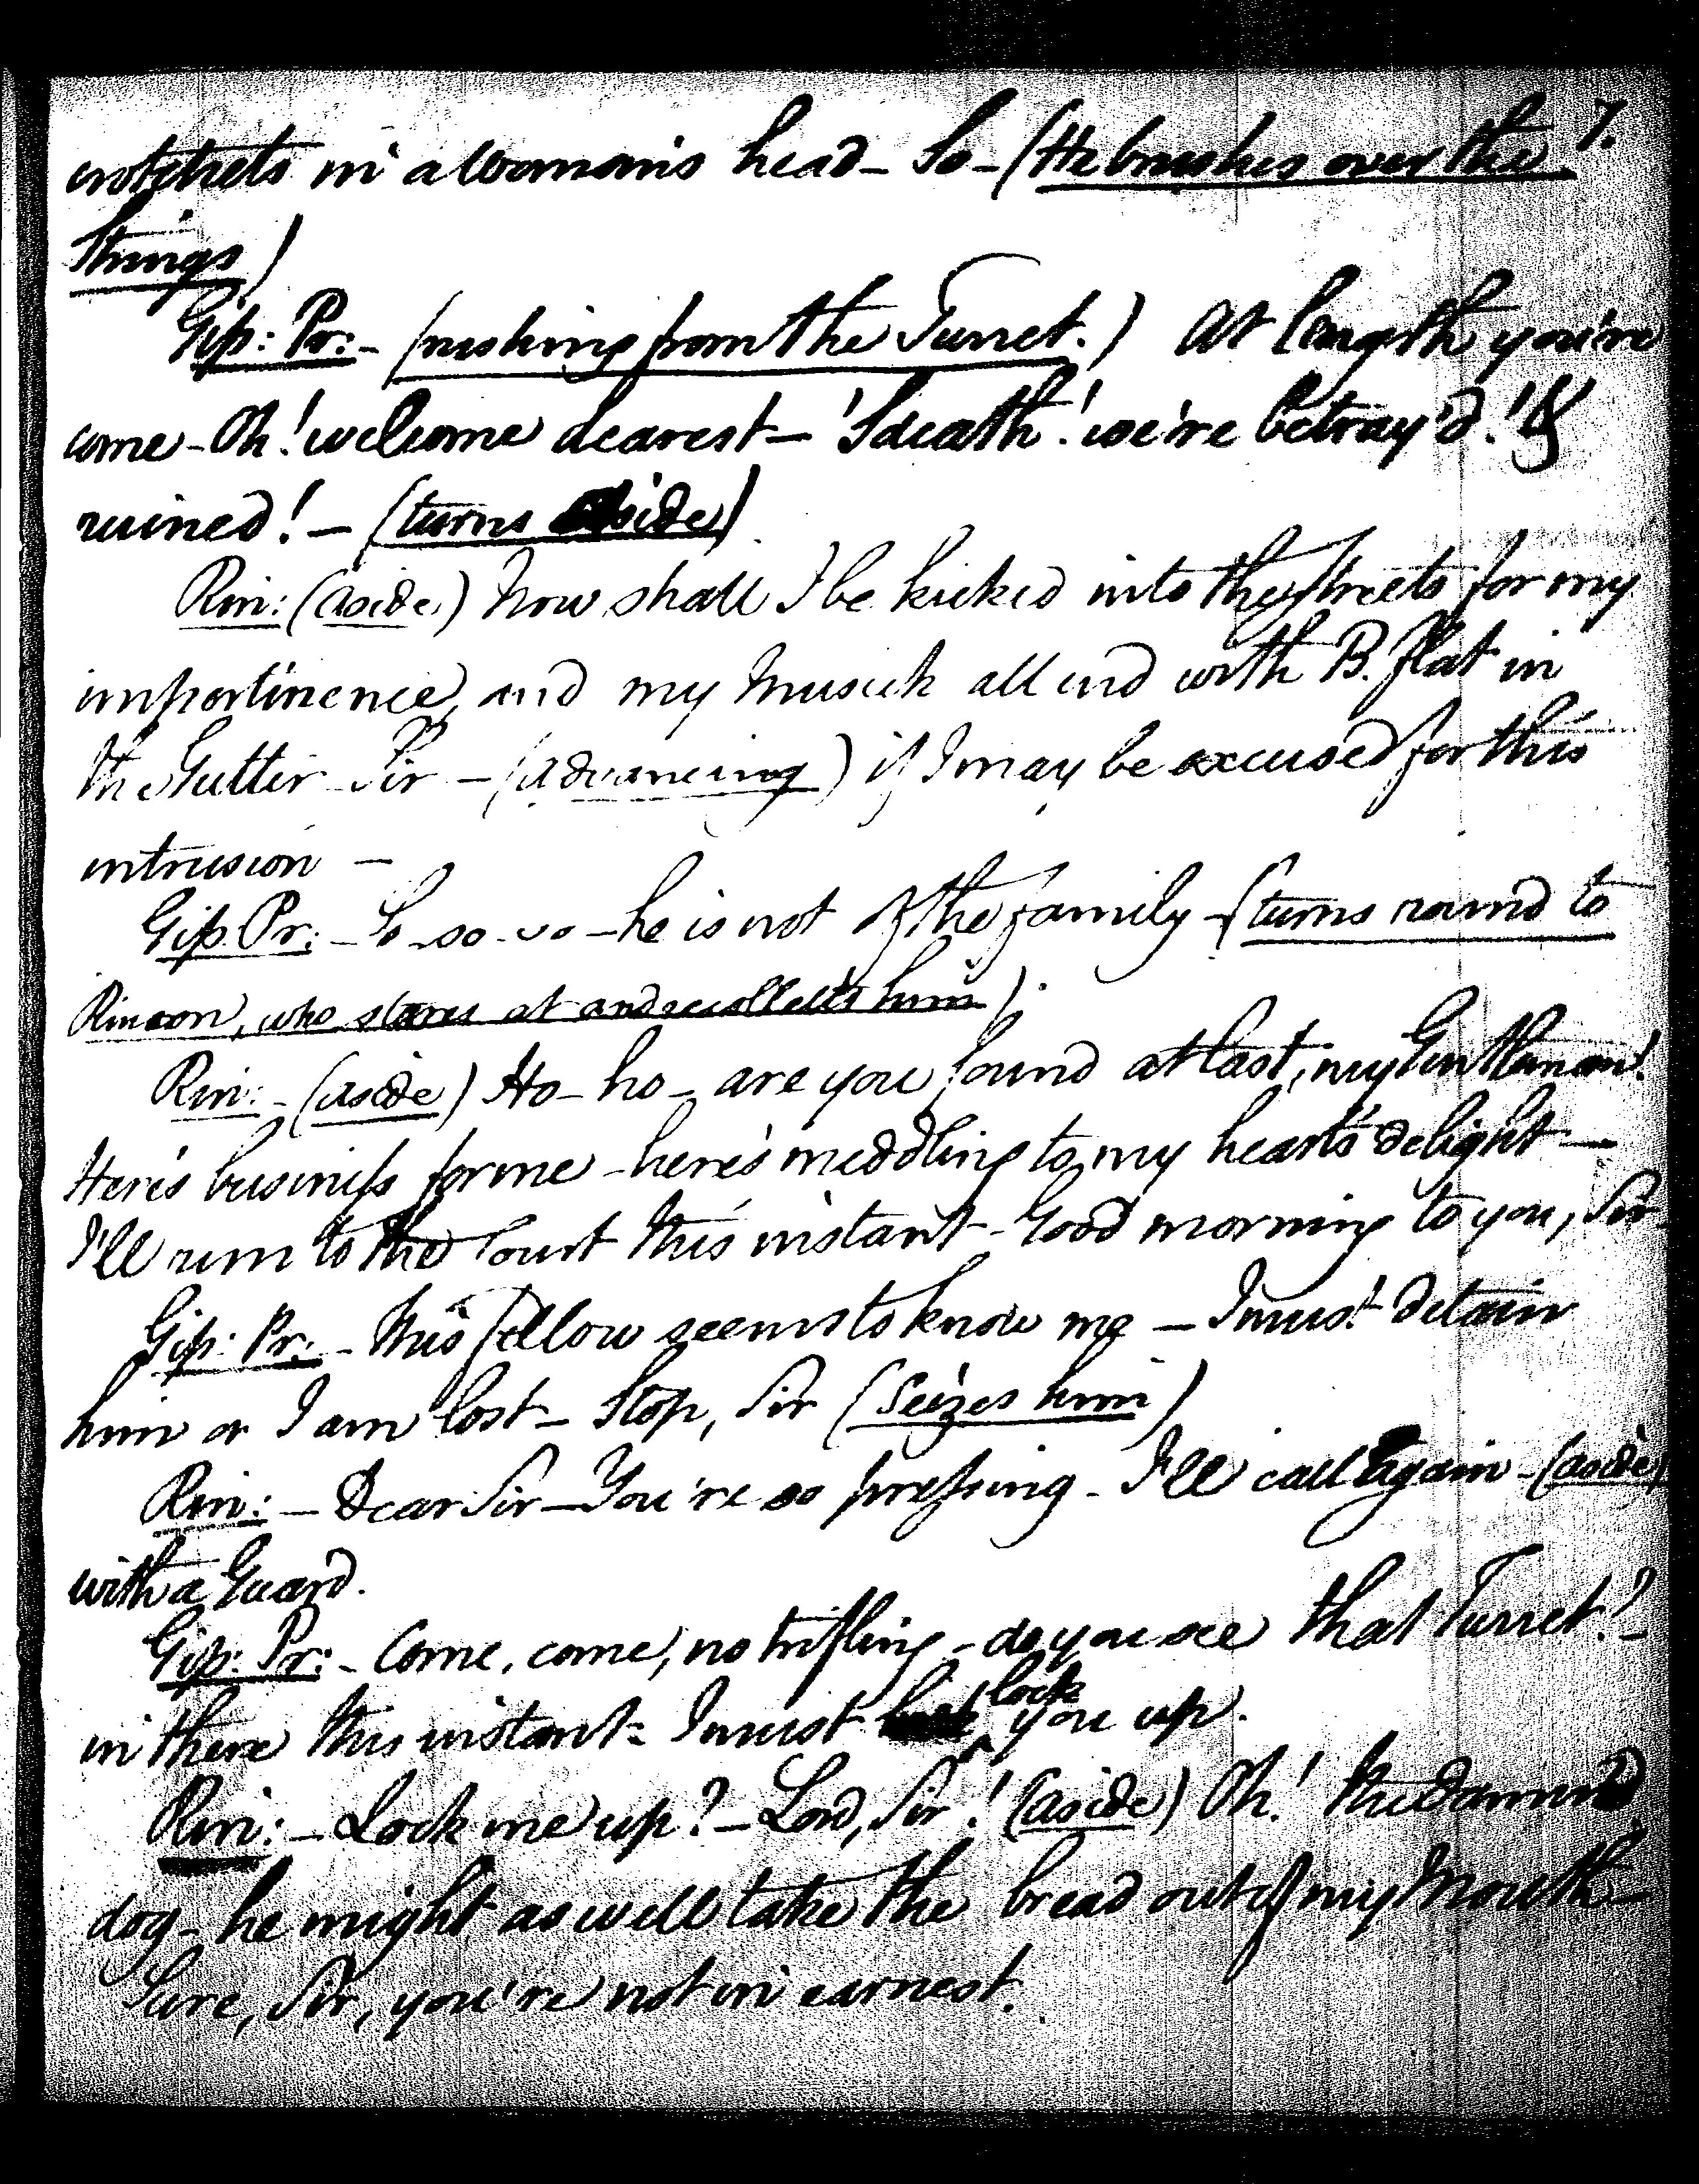 7.
crotchets in a Woman's head - So - (He brushes over the
things)
Gip: Pr: - (rushing from the Turret.) At length you're
come - Oh! welcome dearest - 'Sdeath! we're betray'd! &
ruined! - (turns aside)
Rin: (aside) Now shall I be kicked into the streets for my
impertinence, and my Musick all end with B. flat in
the Gutter - Sir - (advancing) if I may be excused for this
intrusion -
Gip. Pr: - So - so - so - he is not of the family - (turns round to
Rincon, who stares at and recollects him).
Rin: - (aside) Ho - ho - are you found at last, my Gentleman!
Here's business for me - here's meddling to my heart's delight -
I'll run to the Court this instant - Good morning to you, Sir
Gip: Pr: - This fellow seems to know me - I must detain
him or I am lost - Stop, Sir (Seizes him)
Rin: - Dear Sir - You're so pressing - I'll call again - (aside)
with a Guard.
Gip: Pr: - Come, come, no trifling - do you see that Turret? -
in there this instant - I must lock you up.
Rin: - Lock me up? - Lord, Sir! (aside) Oh! the damn'd
dog - he might as well take the bread out of my Mouth -
Sure, Sir, you're not in earnest.